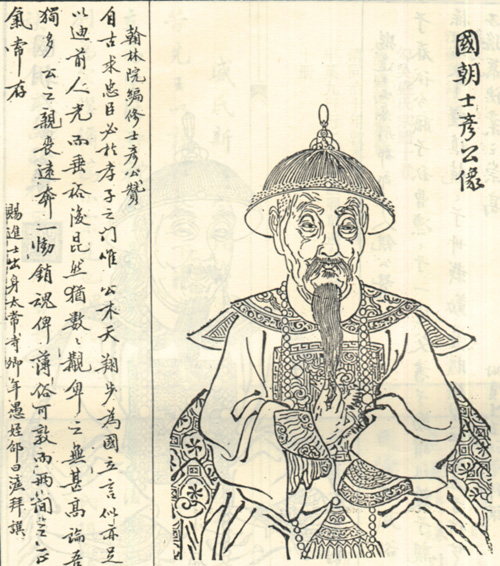 國朝士彥公像
翰林院編修士彥公贊
自古求忠臣必於孝子之門唯公木天翔步為國立言似亦足
以迪前人光而垂裕後昆然猶數〻覯卑之無甚高論吾
獨多公之親喪遠奔一慟銷魂俾薄俗可敦而兩間之正
氣常存
賜進士出身太常寺卿年愚姪邵曰濂拜譔